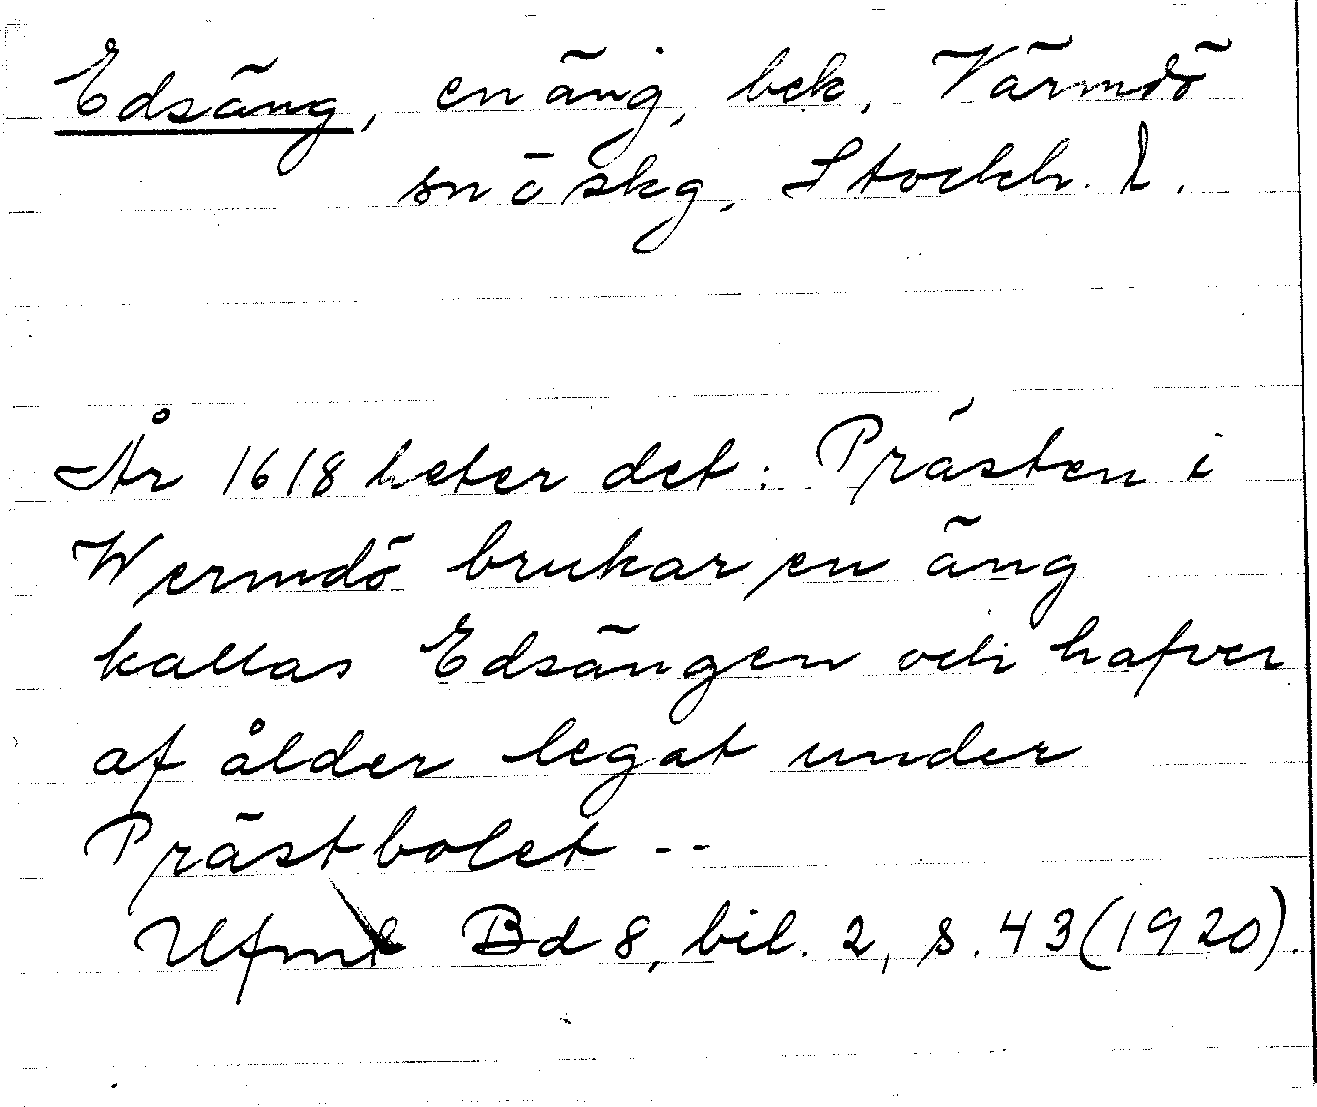 Edsäng, en äng, bek, Värmdö
sn o skg, Stockh. l.
År 1618 heter det: Prästen i
Wermdö brukar en äng
kallas Edsängen och hafver
af ålder legat under
Prästbolet --
Ufmt Bd 8, bil. 2, s. 43 (1920).